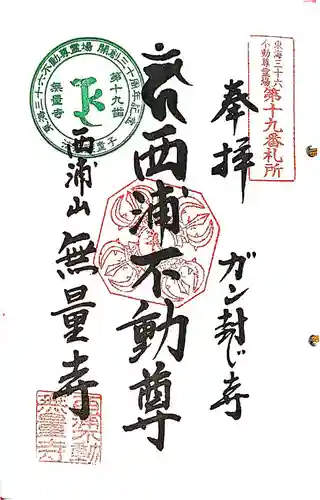 東海三十六
不動尊霊場
第十九番札所
奉拝
ガン封じ寺
西浦不動尊
西浦山
無量寺
東海三十六不動尊霊場 開創三十周年記念
第十九番
無量寺
西浦不動
無量寺